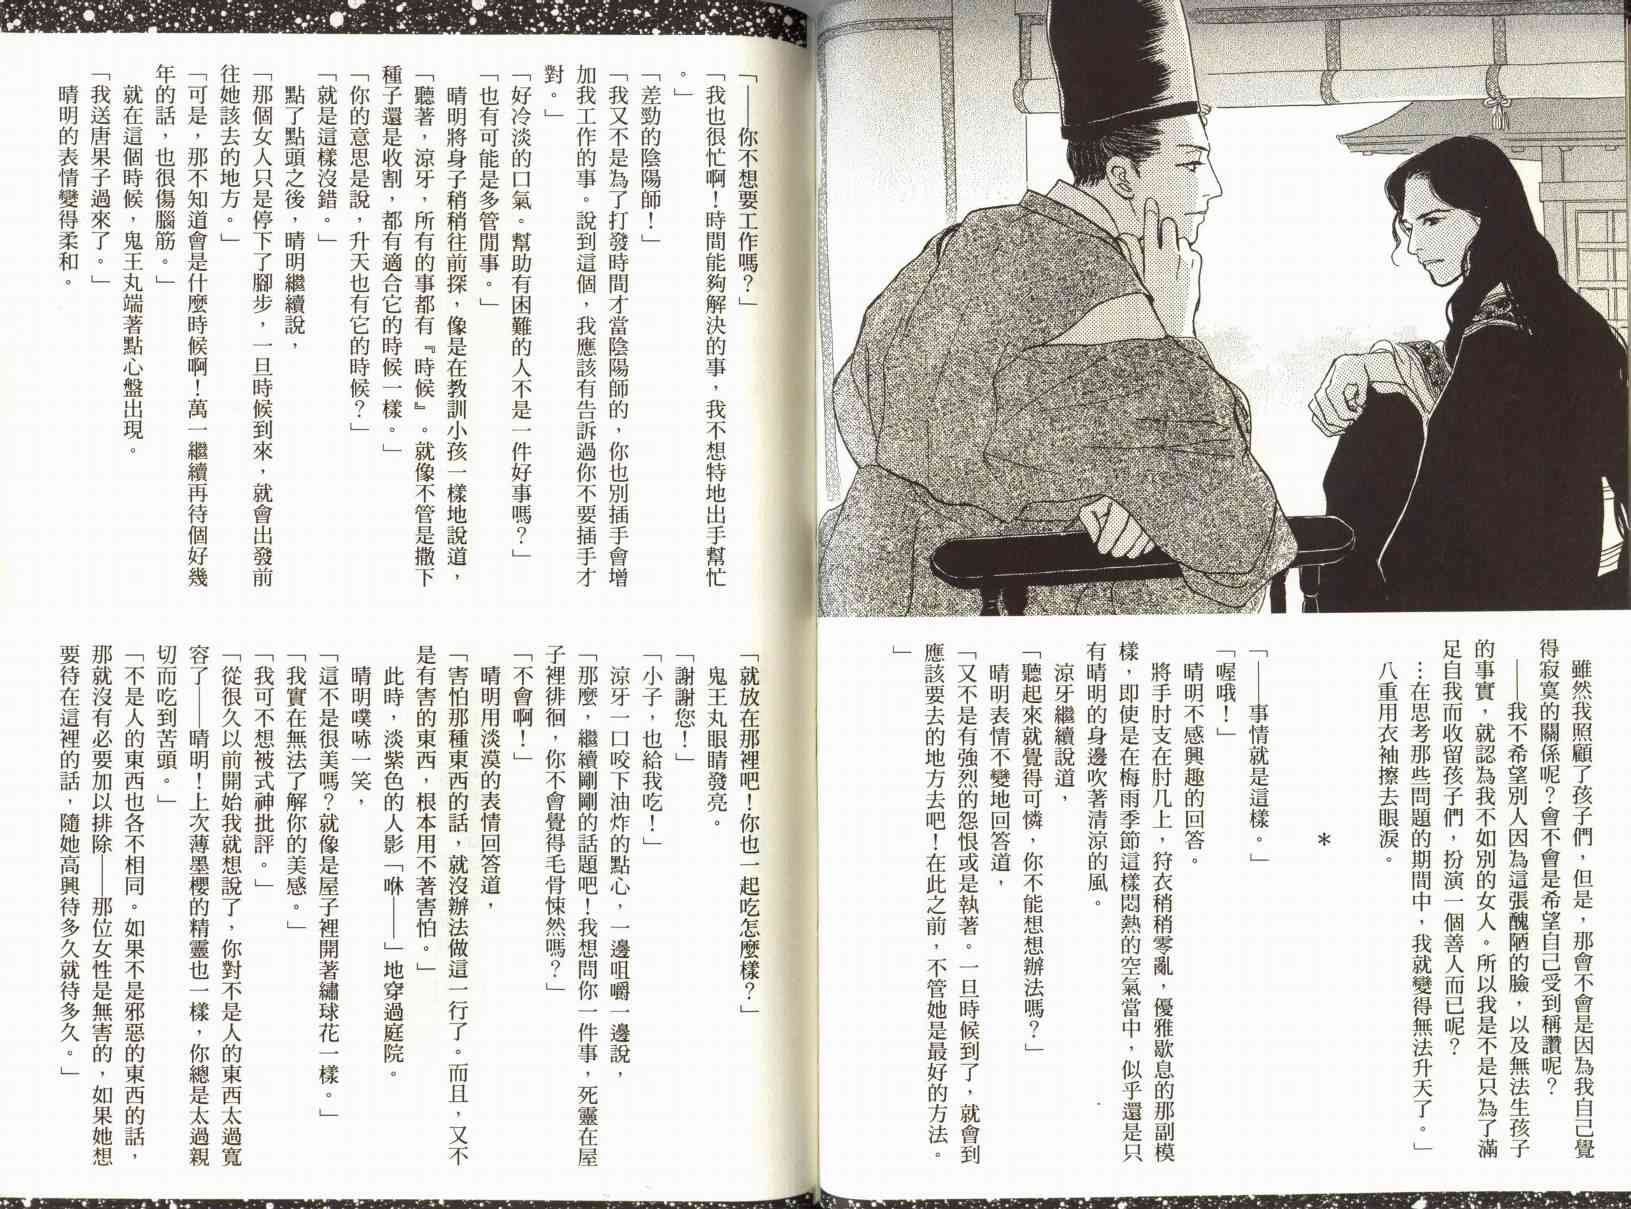 雖然我照顧了孩子們，但是，那會不會是因為我自己覺
得寂寞的關係呢？會不會是希望自己受到稱讚呢？
——我不希望別人因為這張醜陋的臉，以及無法生孩子
的事實，就認為我不如別的女人。所以我是不是只為了滿
足自我而收留孩子們，扮演一個善人而已呢？
…在思考那些問題的期間中，我就變得無法升天了。」
八重用衣袖擦去眼淚。
＊
「——事情就是這樣。」
「喔哦！」
晴明不感興趣的回答。
將手肘支在肘几上，狩衣稍稍零亂，優雅歇息的那副模
樣，即使是在梅雨季節這樣悶熱的空氣當中，似乎還是只
有晴明的身邊吹著清涼的風。
涼牙繼續說道，
「聽起來就覺得可憐，你不能想想辦法嗎？」
晴明表情不變地回答道，
「又不是有強烈的怨恨或是執著。一旦時候到了，就會到
應該要去的地方去吧！在此之前，不管她是最好的方法。
」
「——你不想要工作嗎？」
「我也很忙啊！時間能夠解決的事，我不想特地出手幫忙
。」
「差勁的陰陽師！」
「我又不是為了打發時間才當陰陽師的，你也別插手會增
加我工作的事。說到這個，我應該有告訴過你不要插手才
對。」
「好冷淡的口氣。幫助有困難的人不是一件好事嗎？」
「也有可能是多管閒事。」
晴明將身子稍稍往前探，像是在教訓小孩一樣地說道，
「聽著，涼牙，所有的事都有『時候』。就像不管是撒下
種子還是收割，都有適合它的時候一樣。」
「你的意思是說，升天也有它的時候？」
「就是這樣沒錯。」
點了點頭之後，晴明繼續說，
「那個女人只是停下了腳步，一旦時候到來，就會出發前
往她該去的地方。」
「可是，那不知道會是什麼時候啊！萬一繼續再待個好幾
年的話，也很傷腦筋。」
就在這個時候，鬼王丸端著點心盤出現。
「我送唐果子過來了。」
晴明的表情變得柔和。
「就放在那裡吧！你也一起吃怎麼樣？」
鬼王丸眼睛發亮。
「謝謝您！」
「小子，也給我吃！」
涼牙一口咬下油炸的點心，一邊咀嚼一邊說，
「那麼，繼續剛剛的話題吧！我想問你一件事，死靈在屋
子裡徘徊，你不會覺得毛骨悚然嗎？」
「不會啊！」
晴明用淡漠的表情回答道，
「害怕那種東西的話，就沒辦法做這一行了。而且，又不
是有害的東西，根本用不著害怕。」
此時，淡紫色的人影「咻——」地穿過庭院。
晴明噗哧一笑，
「這不是很美嗎？就像是屋子裡開著繡球花一樣。」
「我實在無法了解你的美感。」
「我可不想被式神批評。」
「從很久以前開始我就想說了，你對不是人的東西太過寬
容了——晴明！上次薄墨櫻的精靈也一樣，你總是太過親
切而吃到苦頭。」
「不是人的東西也各不相同。如果不是邪惡的東西的話，
那就沒有必要加以排除——那位女性是無害的，如果她想
要待在這裡的話，隨她高興待多久就待多久。」